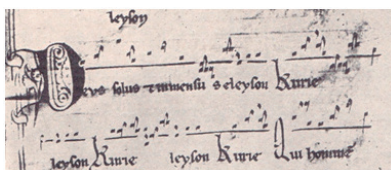 leyson
Deus solus et inmensus eleyson Kurie
leyson Kurie leyson Kurie Qui homine